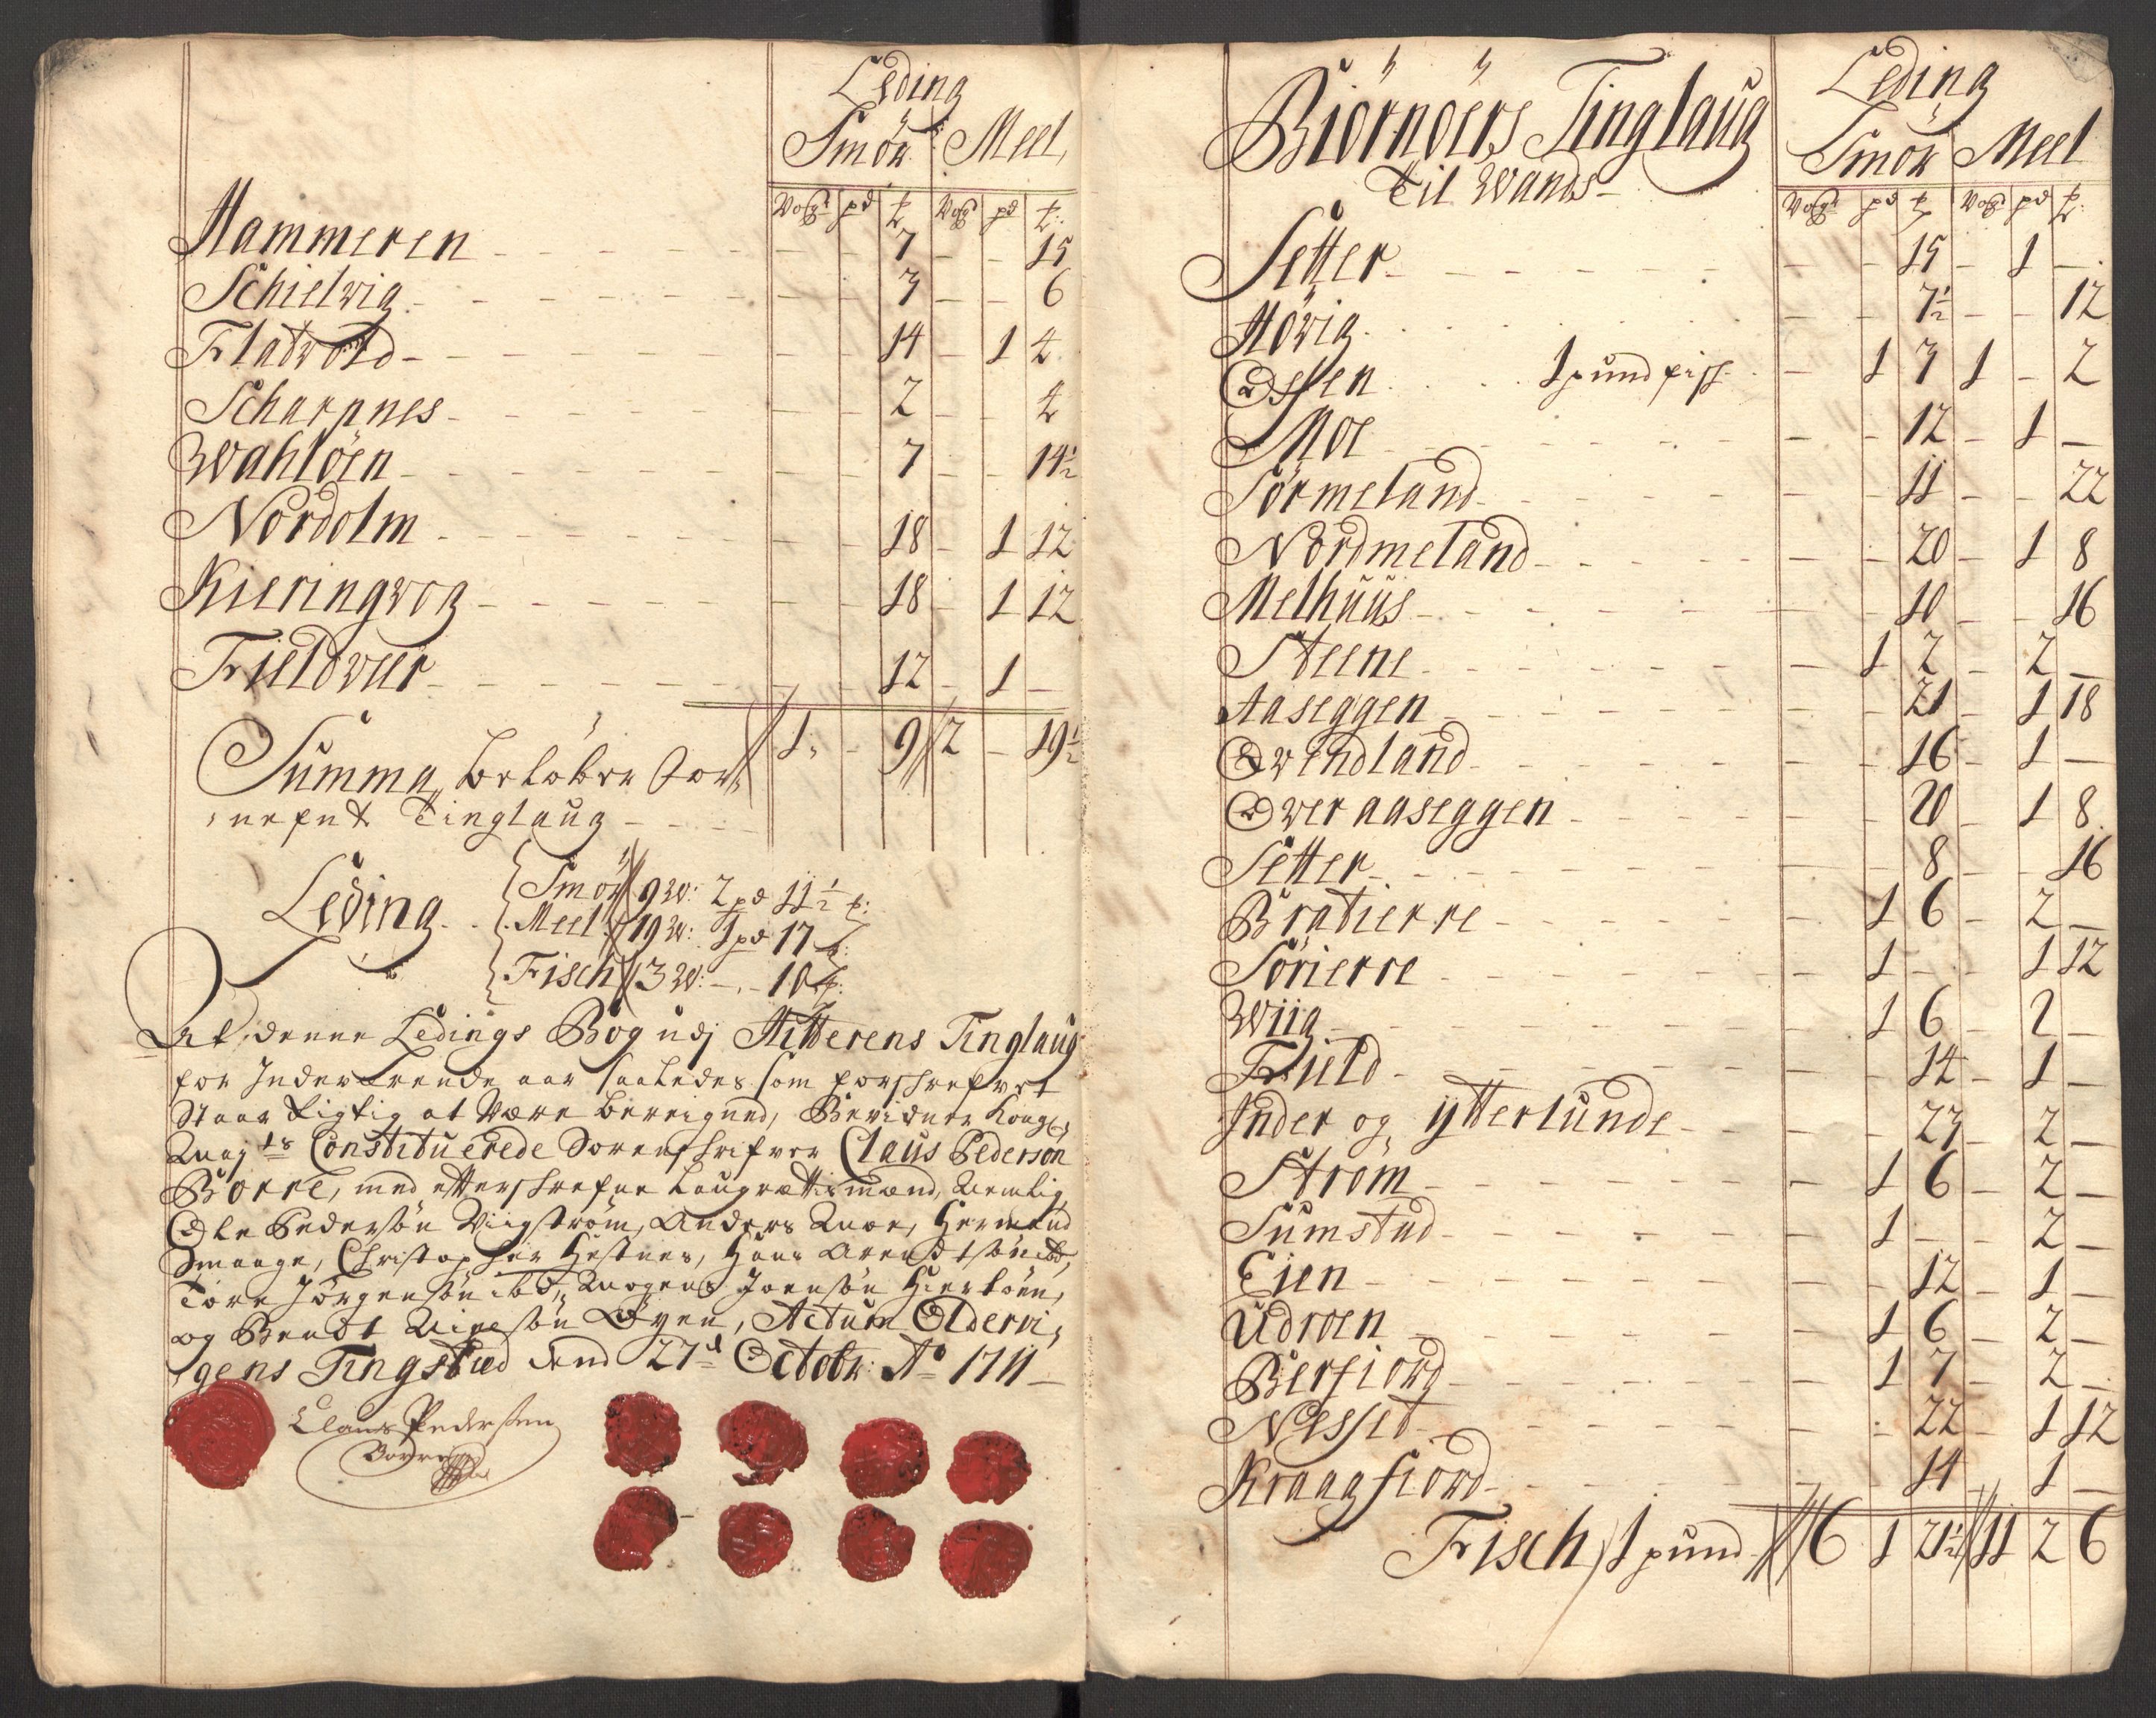 Leding
Smör. Meel,
Vog pd ℔ Vog pd ℔
Hammeren - - 7 - - 15
Schielvig - - 3 - - 6
Flatvold - - 14 - 1 4
Scharpnes - - 2 - - 4
Wahlöen - - 7 - - 14½
Nordolm - - 18 - 1 12
Kieringvog - - 18 - 1 12
Fieldvær - - 12 - 1 -
Summa belöber for 1 - 9 2 - 19½
nefnt Tinglaug
Leding
Smör 9 w: 2 pd 11½ ℔:
Meel 19 w: 1 pd 17 ℔:
Fisch 3 w: - 10 ℔:
At denne Ledings Bog udj Hitterens Tinglaug
for Inderværende aar saaledes som forschrefvet
Staar Rigtig at være bereigned, Bevidner Kongl:
Mayts Constituerede Sorenschrifver Claus Pedersøn
Borre, med effterschrefne Laugrettismænd, Nemlig
Ole Pedersøn Viigström, Anders Moe, Hermand
Smaage, Christopher Hestnes, Hans Arendtsøn ibd,
Tore Jörgensøn ibd, Mogens Joensøn Hiertöen,
og Bendt Nielsøn Öyen, Actum Oldervi-
gens Tingsted dend 27d Octobr: Ao 1711
Claus Pedersen
Borre
Biörnöers Tinglaug
Til Wands
Leding
Smör Meel
Vog pd ℔ Vog pd ℔
Setter - - 15 - 1 -
Hövig - - 7½ - - 12
Ossen 1 pund fisch - 1 3 1 - 2
Moe - - 12 - 1 -
Sörmeland - - 11 - - 22
Nordmeland - - 20 - 1 8
Melhuus - - 10 - - 16
Steene - 1 2 - 2 -
Aaseggen - - 21 - 1 18
Qvendland - - 16 - 1 -
Overaaseggen - - 20 - 1 8
Setter - - 8 - - 16
Bratierre - 1 6 - 2 -
Sörierre - 1 - - 1 12
Wiig - 1 6 - 2 -
Field - - 14 - 1 -
Inder og ytterlunde - - 23 - 2 -
Ström - 1 6 - 2 -
Sumstad - 1 - - 2 -
Eien - - 12 - 1 -
Udroen - 1 6 - 2 -
Berfiord - 1 7 - 2 -
Nesset - - 22 - 1 12
Kraagfiord - - 14 - 1 -
Fisch 1 pund 6 1 21½ 11 2 6